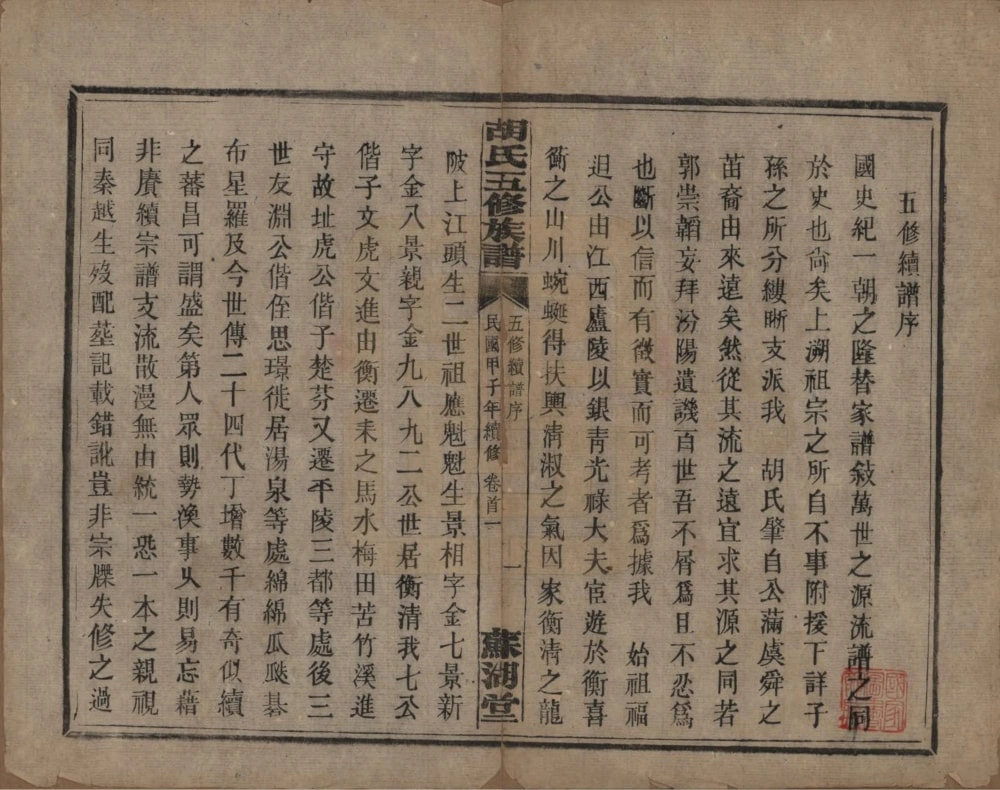 五修續譜序
國史紀一朝之隆替家譜敍萬世之源流譜之同
於史也尚矣上溯祖宗之所自不事附援下詳子
孫之所分縷晰支派我 胡氏肇自公滿虞舜之
苗裔由來遠矣然從其流之遠宜求其源之同若
郭崇韜妄拜汾陽遺譏百世吾不屑爲且不忍爲
也斷以信而有徵實而可考者爲據我 始祖福
迴公由江西盧陵以銀青光祿大夫宦遊於衡喜
衡之山川蜿蜒得扶輿清淑之氣因家衡清之龍
胡氏五修族譜
五修續譜序
民國甲子年續修 卷首一
一
蘇湖堂
陂上江頭生二世祖應魁魁生景相字金七景新
字金八景親字金九八九二公世居衡清我七公
偕子文虎文進由衡遷耒之馬水梅田苦竹溪進
守故址虎公偕子楚芬又遷平陵三都等處後三
世友淵公偕侄思璟徙居湯泉等處綿綿瓜瓞碁
布星羅及今世傳二十四代丁增數千有奇似續
之蕃昌可謂盛矣第人眾則勢渙事乆則易忘藉
非賡續宗譜支流散漫無由統一恐一本之親視
同秦越生歿配塟記載錯訛豈非宗牒失修之過